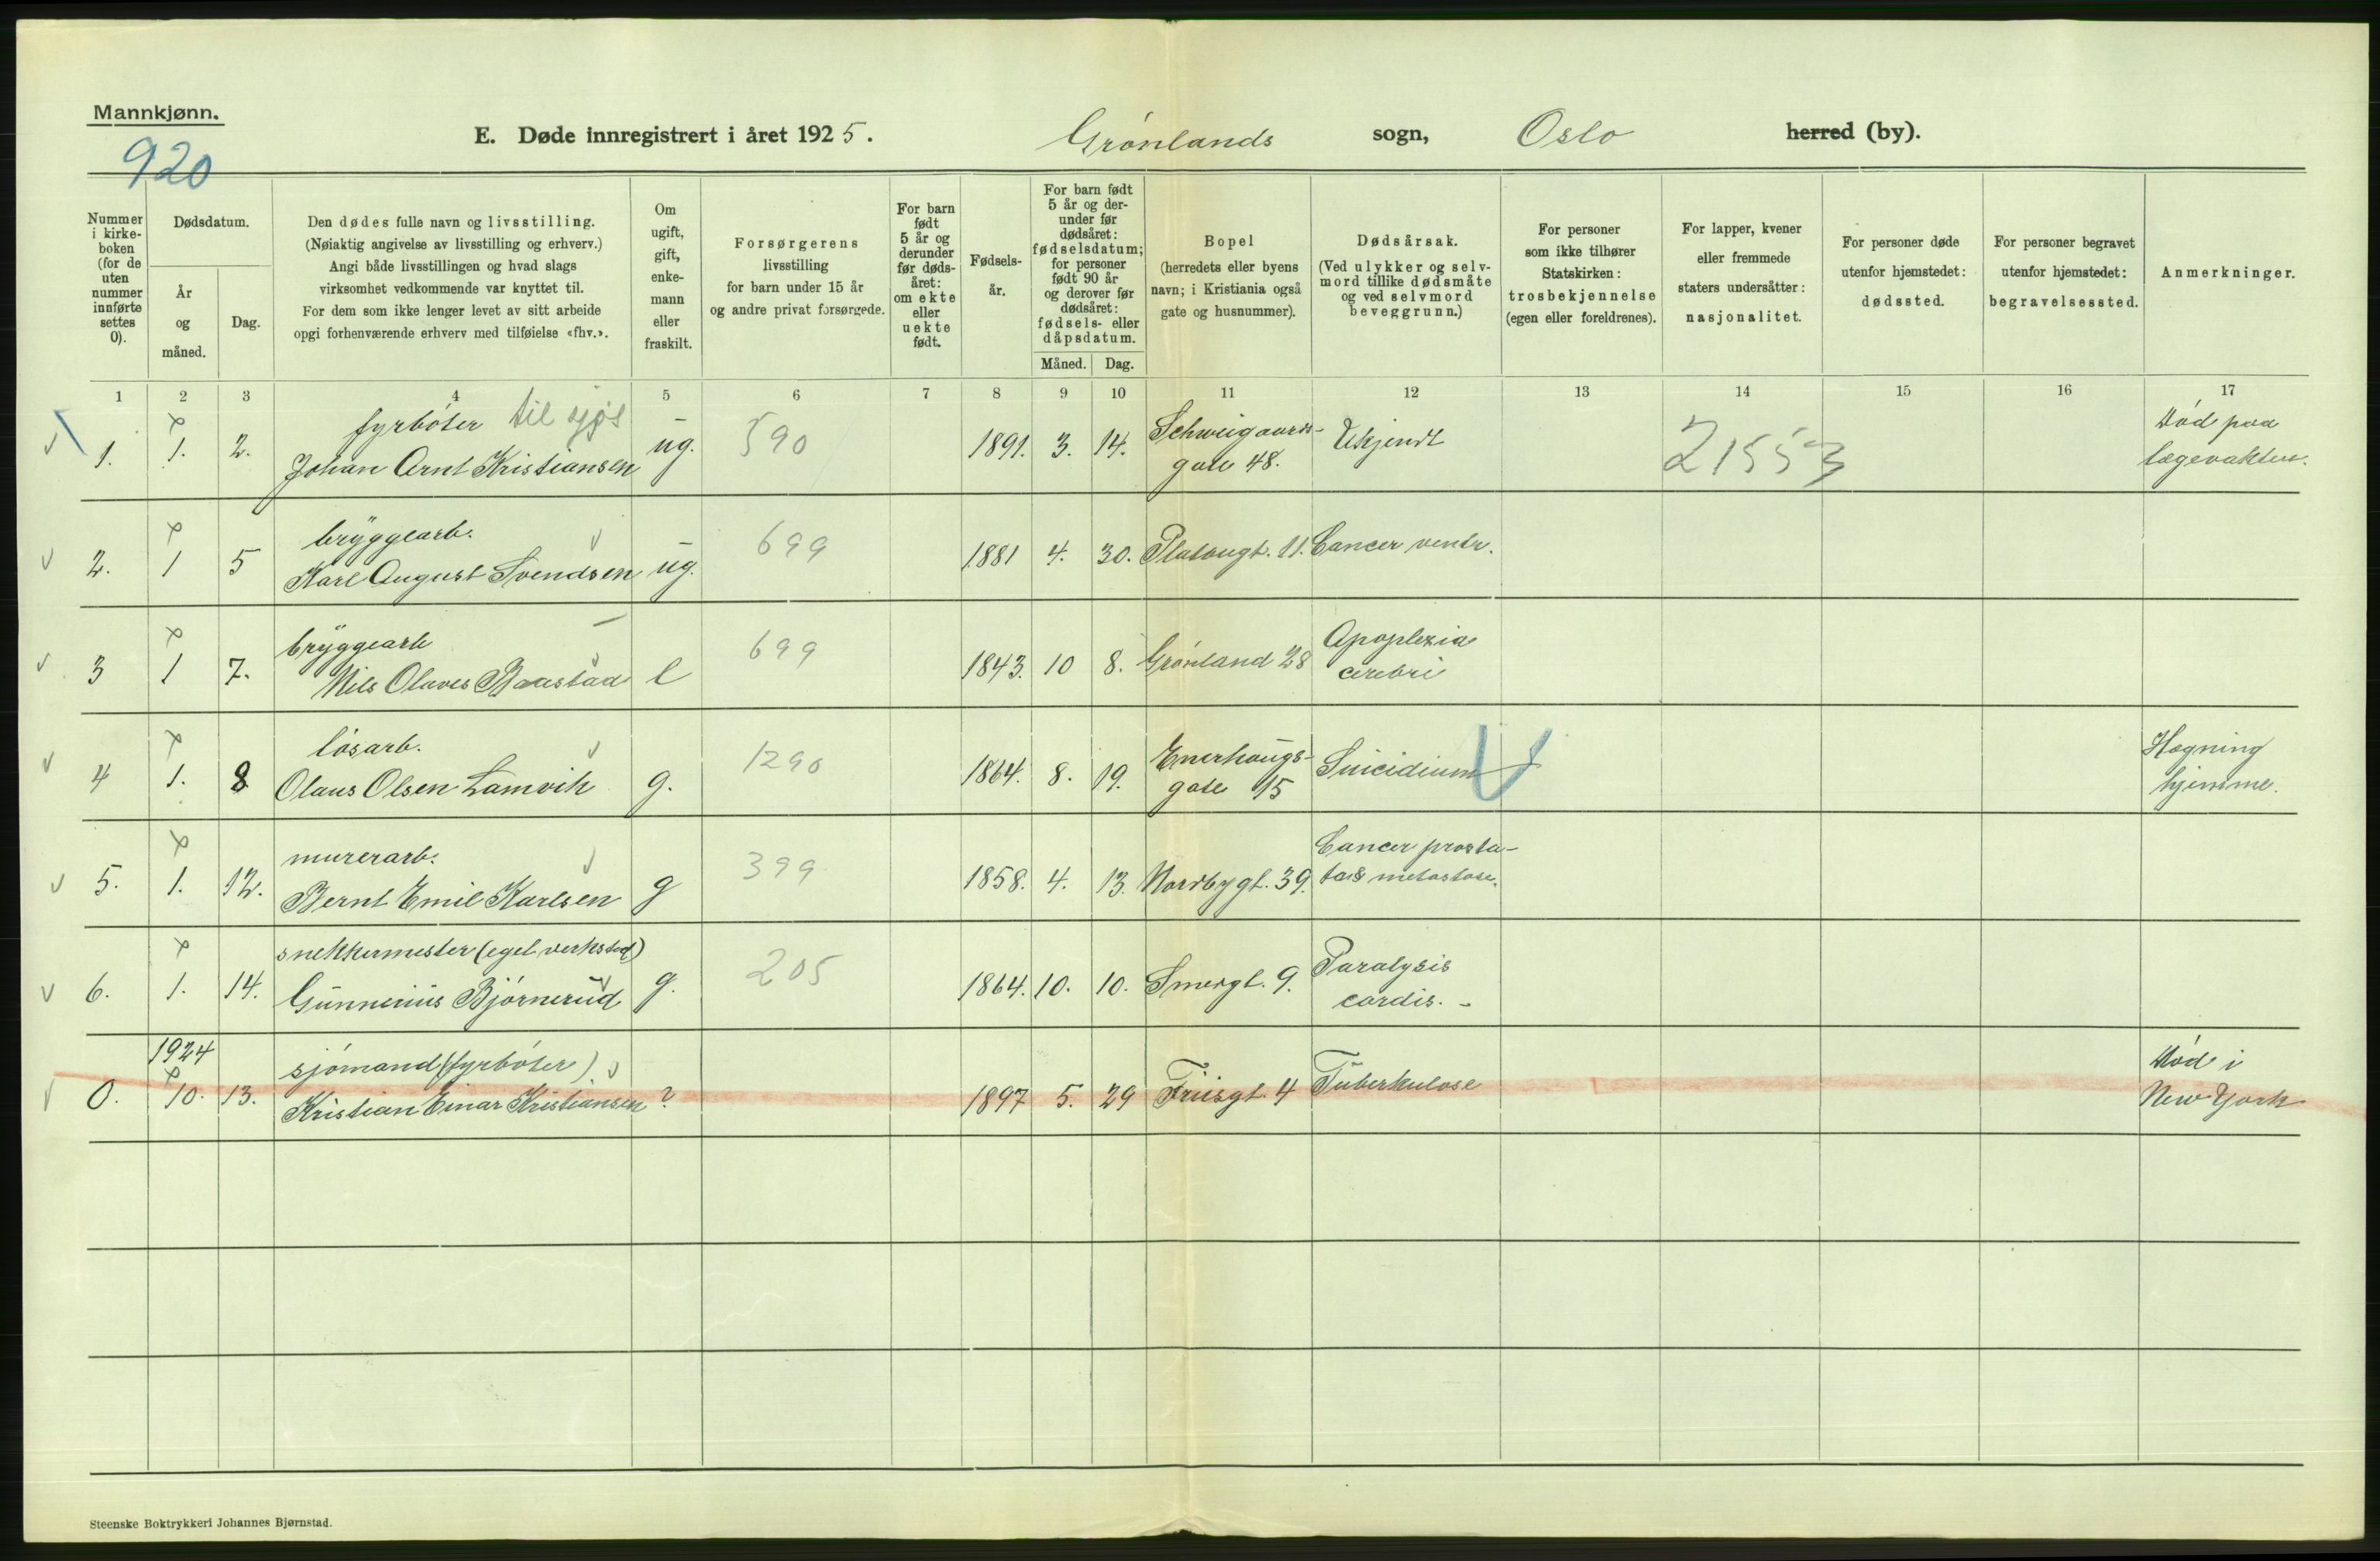 Mannkjønn.
920
E. Døde innregistrert i året 1925. Grønlands sogn, Oslo herred (by).
Nummer i kirke-boken (for de uten nummer innførte settes 0).
Dødsdatum.
År og måned.
Dag.
Den dødes fulle navn og livsstilling.
(Nøiaktig angivelse av livsstilling og erhverv.)
Angi både livsstillingen og hvad slags
virksomhet vedkommende var knyttet til.
For dem som ikke lenger levet av sitt arbeide
opgi forhenværende erhverv med tilføielse «fhv.».
Om ugift, gift, enke-mann eller fraskilt.
Forsørgerens
livsstilling
for barn under 15 år
og andre privat forsørgede.
For barn født 5 år og derunder før døds-året: om ekte eller uekte født.
Fødsels-år.
For barn født 5 år og der-under før dødsåret: fødselsdatum; for personer født 90 år og derover før dødsåret: fødsels- eller dåpsdatum.
Måned. Dag.
Bopel
(herredets eller byens
navn; i Kristiania også
gate og husnummer).
Dødsårsak.
(Ved ulykker og selv-
mord tillike dødsmåte
og ved selvmord
beveggrunn.)
For personer
som ikke tilhører
Statskirken:
trosbekjennelse
(egen eller foreldrenes).
For lapper, kvener
eller fremmede
staters undersåtter:
nasjonalitet.
For personer døde
utenfor hjemstedet:
dødssted.
For personer begravet
utenfor hjemstedet:
begravelsessted.
Anmerkninger.
1 2 3 4 5 6 7 8 9 10 11 12 13 14 15 16 17
fyrbøter til sjøs Schweigaards- Død paa
1. 1. 2. Johan Arnt Kristiansen ug. 590 1891. 3. 14. gate 48. Ukjendt 21553 lægevakten.
bryggearb.
2. 1 5 Karl August Svendsen ug. 699 1881 4. 30. Platougt. 11. Cancer ventr.
bryggearb Apoplexia
3 1 7. Nils Olaves Baastad e 699 1843. 10 8. Grønland 28 cerebri
løsarb. Enerhaugs- Hægning
4 1. 8 Olaus Olsen Lamvik g. 1290 1864. 8. 19. gate 15 Suicidium hjemme.
murerarb. Cancer prosta-
5. 1. 12. Bernt Emil Karlsen g 399 1858. 4. 13. Nordbygt. 39. metastase.
snekkermester (eget verksted) Paralysis
6. 1. 14. Gunnerius Bjørnerud g. 205 1864. 10. 10. Smergt. 9. cordis.
1924 sjømand (fyrbøter) Død i
0. 10. 13. Kristian Einar Kristiansen ? 1897 5. 29 Friisgt. 4 Tuberkulose New York
Steenske Boktrykkeri Johannes Bjørnstad.